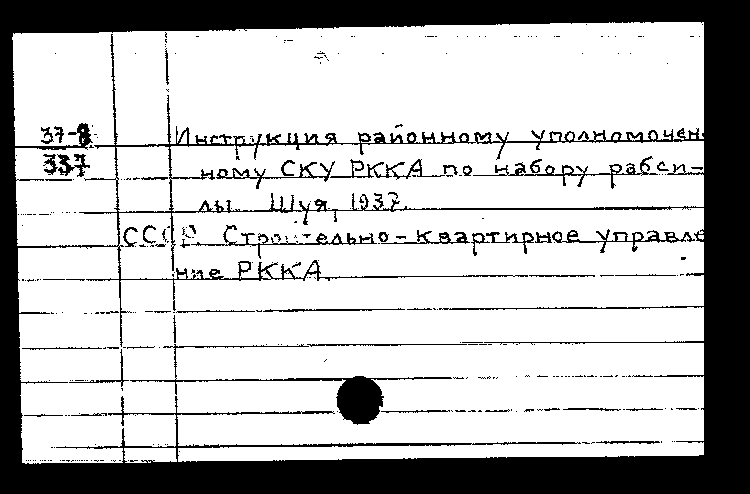 37-8
337
Инструкция районному уполномочен-
ному СКУ РККА по набору рабси-
лы. Шуя, 1937.
СССР. Строительно-квартирное управле-
ние РККА.